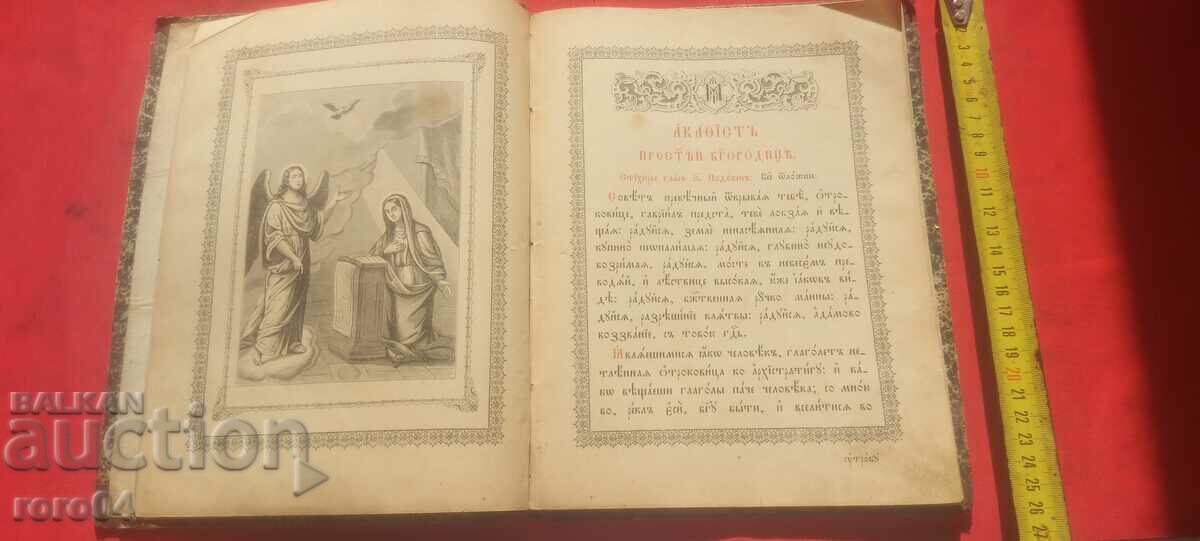 АКАѲІСТЪ
ПРЕСТѢЙ БЦ҃ОРОДИЦѢ.
Стїхиры гласъ
Совѣтъ превѣчный ѿкрывая тебѣ, ѻтро-
ковице, гаврїилъ предста, тебѐ лобзая и҆ вѣ-
щая: ра́дуйся, землѐ ненасѣянная: ра́дуйся,
купино̀ неѡпалимая: ра́дуйся, глубино̀ неудо-
возримая, ра́дуйся, мо́сте къ небесемъ пре-
водяй, и҆ лѣствице высокая, ю҆же і҆аковъ ви-
дѣ: ра́дуйся, бж҃твенная ручко манны: ра́-
дуйся, разрѣшенїе клятвы: ра́дуйся, а҆дамово
воззванїе, съ тобою гдⷭ҇ь.
Ꙗ҆вляешимися ꙗ҆кѡ человѣкъ, глаголетъ не-
тлѣнная ѻ҆троковица ко а҆рхїстратигу: и҆ ка-
кѡ вѣщаеши глаголы паче человѣка; со мною
бо, реклъ є҆сѝ, бг҃у быти, и҆ вселитися во
ᲂу҆тробу
BALKAN
auction
roro04
2 3 4 5 6 7 8 9 10 11 12 13 14 15 16 17 18 19 20 21 22 23 24 25 26 27